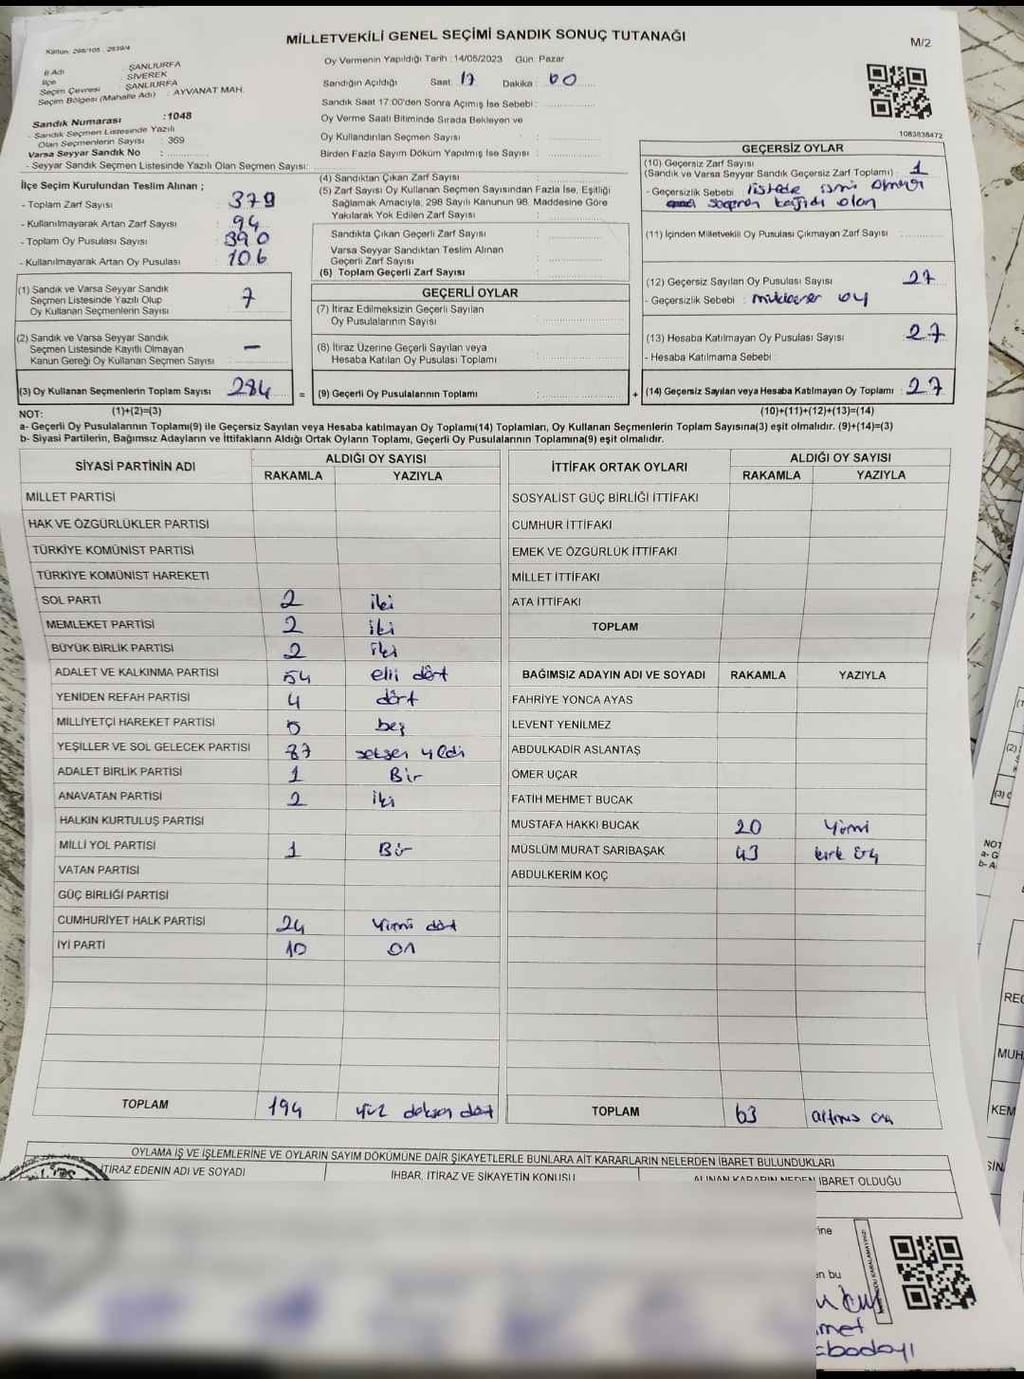 MİLLETVEKİLİ GENEL SEÇİMİ SANDIK SONUÇ TUTANAĞI
M/2
Kanun: 298/105 , 2839/4
İl Adı : ŞANLIURFA
İlçe : SİVEREK
Seçim Çevresi : ŞANLIURFA
Seçim Bölgesi (Mahalle Adı) : AYVANAT MAH.
Sandık Numarası :1048
- Sandık Seçmen Listesinde Yazılı
Olan Seçmenlerin Sayısı : 369
Varsa Seyyar Sandık No :
- Seyyar Sandık Seçmen Listesinde Yazılı Olan Seçmen Sayısı:
İlçe Seçim Kurulundan Teslim Alınan ;
- Toplam Zarf Sayısı : 379
- Kullanılmayarak Artan Zarf Sayısı : 94
- Toplam Oy Pusulası Sayısı : 390
- Kullanılmayarak Artan Oy Pusulası : 106
(1) Sandık ve Varsa Seyyar Sandık
Seçmen Listesinde Yazılı Olup
Oy Kullanan Seçmenlerin Sayısı : 7
(2) Sandık ve Varsa Seyyar Sandık
Seçmen Listesinde Kayıtlı Olmayan
Kanun Gereği Oy Kullanan Seçmen Sayısı : —
(3) Oy Kullanan Seçmenlerin Toplam Sayısı : 284
(1)+(2)=(3)
Oy Vermenin Yapıldığı Tarih : 14/05/2023 Gün: Pazar
Sandığın Açıldığı Saat: 17 Dakika : 00
Sandık Saat 17:00'den Sonra Açımış İse Sebebi :
Oy Verme Saati Bitiminde Sırada Bekleyen ve
Oy Kullandırılan Seçmen Sayısı :
Birden Fazla Sayım Döküm Yapılmış İse Sayısı :
(4) Sandıktan Çıkan Zarf Sayısı :
(5) Zarf Sayısı Oy Kullanan Seçmen Sayısından Fazla İse, Eşitliği
Sağlamak Amacıyla, 298 Sayılı Kanunun 98. Maddesine Göre
Yakılarak Yok Edilen Zarf Sayısı :
Sandıkta Çıkan Geçerli Zarf Sayısı :
Varsa Seyyar Sandıktan Teslim Alınan
Geçerli Zarf Sayısı :
(6) Toplam Geçerli Zarf Sayısı :
GEÇERLİ OYLAR
(7) İtiraz Edilmeksizin Geçerli Sayılan
Oy Pusulalarının Sayısı :
(8) İtiraz Üzerine Geçerli Sayılan veya
Hesaba Katılan Oy Pusulası Toplamı :
= (9) Geçerli Oy Pusulalarının Toplamı :
1083838472
GEÇERSİZ OYLAR
(10) Geçersiz Zarf Sayısı
(Sandık ve Varsa Seyyar Sandık Geçersiz Zarf Toplamı) : 1
- Geçersizlik Sebebi : listede ismi olmayı
kağıdı olan
(11) İçinden Milletvekili Oy Pusulası Çıkmayan Zarf Sayısı :
(12) Geçersiz Sayılan Oy Pusulası Sayısı : 27
- Geçersizlik Sebebi : mükerrer oy
(13) Hesaba Katılmayan Oy Pusulası Sayısı : 27
- Hesaba Katılmama Sebebi :
+ (14) Geçersiz Sayılan veya Hesaba Katılmayan Oy Toplamı : 27
(10)+(11)+(12)+(13)=(14)
NOT:
a- Geçerli Oy Pusulalarının Toplamı(9) ile Geçersiz Sayılan veya Hesaba katılmayan Oy Toplamı(14) Toplamları, Oy Kullanan Seçmenlerin Toplam Sayısına(3) eşit olmalıdır. (9)+(14)=(3)
b- Siyasi Partilerin, Bağımsız Adayların ve İttifakların Aldığı Ortak Oyların Toplamı, Geçerli Oy Pusulalarının Toplamına(9) eşit olmalıdır.
SİYASİ PARTİNİN ADI ALDIĞI OY SAYISI
RAKAMLA YAZIYLA
MİLLET PARTİSİ
HAK VE ÖZGÜRLÜKLER PARTİSİ
TÜRKİYE KOMÜNİST PARTİSİ
TÜRKİYE KOMÜNİST HAREKETİ
SOL PARTİ 2 iki
MEMLEKET PARTİSİ 2 iki
BÜYÜK BİRLİK PARTİSİ 2 iki
ADALET VE KALKINMA PARTİSİ 54 elli dört
YENİDEN REFAH PARTİSİ 4 dört
MİLLİYETÇİ HAREKET PARTİSİ 5 beş
YEŞİLLER VE SOL GELECEK PARTİSİ 87 seksen yedi
ADALET BİRLİK PARTİSİ 1 Bir
ANAVATAN PARTİSİ 2 iki
HALKIN KURTULUŞ PARTİSİ
MİLLİ YOL PARTİSİ 1 Bir
VATAN PARTİSİ
GÜÇ BİRLİĞİ PARTİSİ
CUMHURİYET HALK PARTİSİ 24 Yirmi dört
İYİ PARTİ 10 on
TOPLAM 194 Yüz doksan dört
İTTİFAK ORTAK OYLARI ALDIĞI OY SAYISI
RAKAMLA YAZIYLA
SOSYALİST GÜÇ BİRLİĞİ İTTİFAKI
CUMHUR İTTİFAKI
EMEK VE ÖZGÜRLÜK İTTİFAKI
MİLLET İTTİFAKI
ATA İTTİFAKI
TOPLAM
BAĞIMSIZ ADAYIN ADI VE SOYADI RAKAMLA YAZIYLA
FAHRİYE YONCA AYAS
LEVENT YENİLMEZ
ABDULKADİR ASLANTAŞ
ÖMER UÇAR
FATİH MEHMET BUCAK
MUSTAFA HAKKI BUCAK 20 Yirmi
MÜSLÜM MURAT SARIBAŞAK 43 kırk üç
ABDULKERİM KOÇ
TOPLAM 63 altmış üç
OYLAMA İŞ VE İŞLEMLERİNE VE OYLARIN SAYIM DÖKÜMÜNE DAİR ŞİKAYETLERLE BUNLARA AİT KARARLARIN NELERDEN İBARET BULUNDUKLARI
İTİRAZ EDENİN ADI VE SOYADI İHBAR, İTİRAZ VE ŞİKAYETİN KONUSU ALINAN KARARIN NEDEN İBARET OLDUĞU
ine
en bu
met
abodayı
(2)
(3)
NOT
a- G
b- A
REC
MUH
KEM